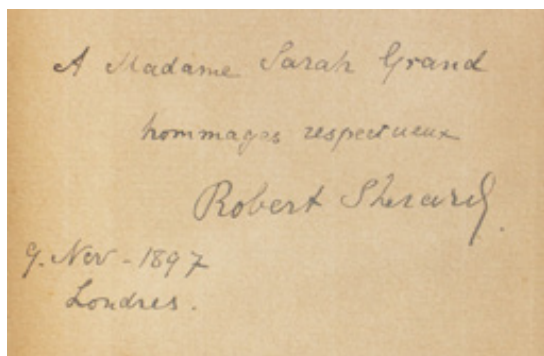 A Madame Sarah Grand
hommages respectueux
Robert Sherard.
9. Nov - 1897
Londres.